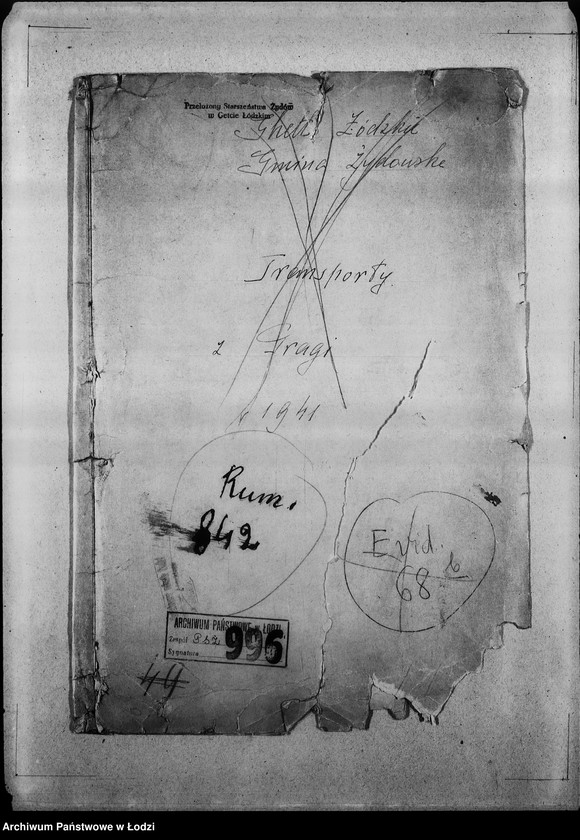 Przełożony Starszeństwa Żydów
w Getcie Łódzkim
Ghetto Łódzkie
Gmina Żydowska
Transporty
z Pragi
1941
Rum.
842
Evid.
68 b
ARCHIWUM PAŃSTWOWE w ŁODZI
Zespół
Sygnatura 996
49
Archiwum Państwowe w Łodzi